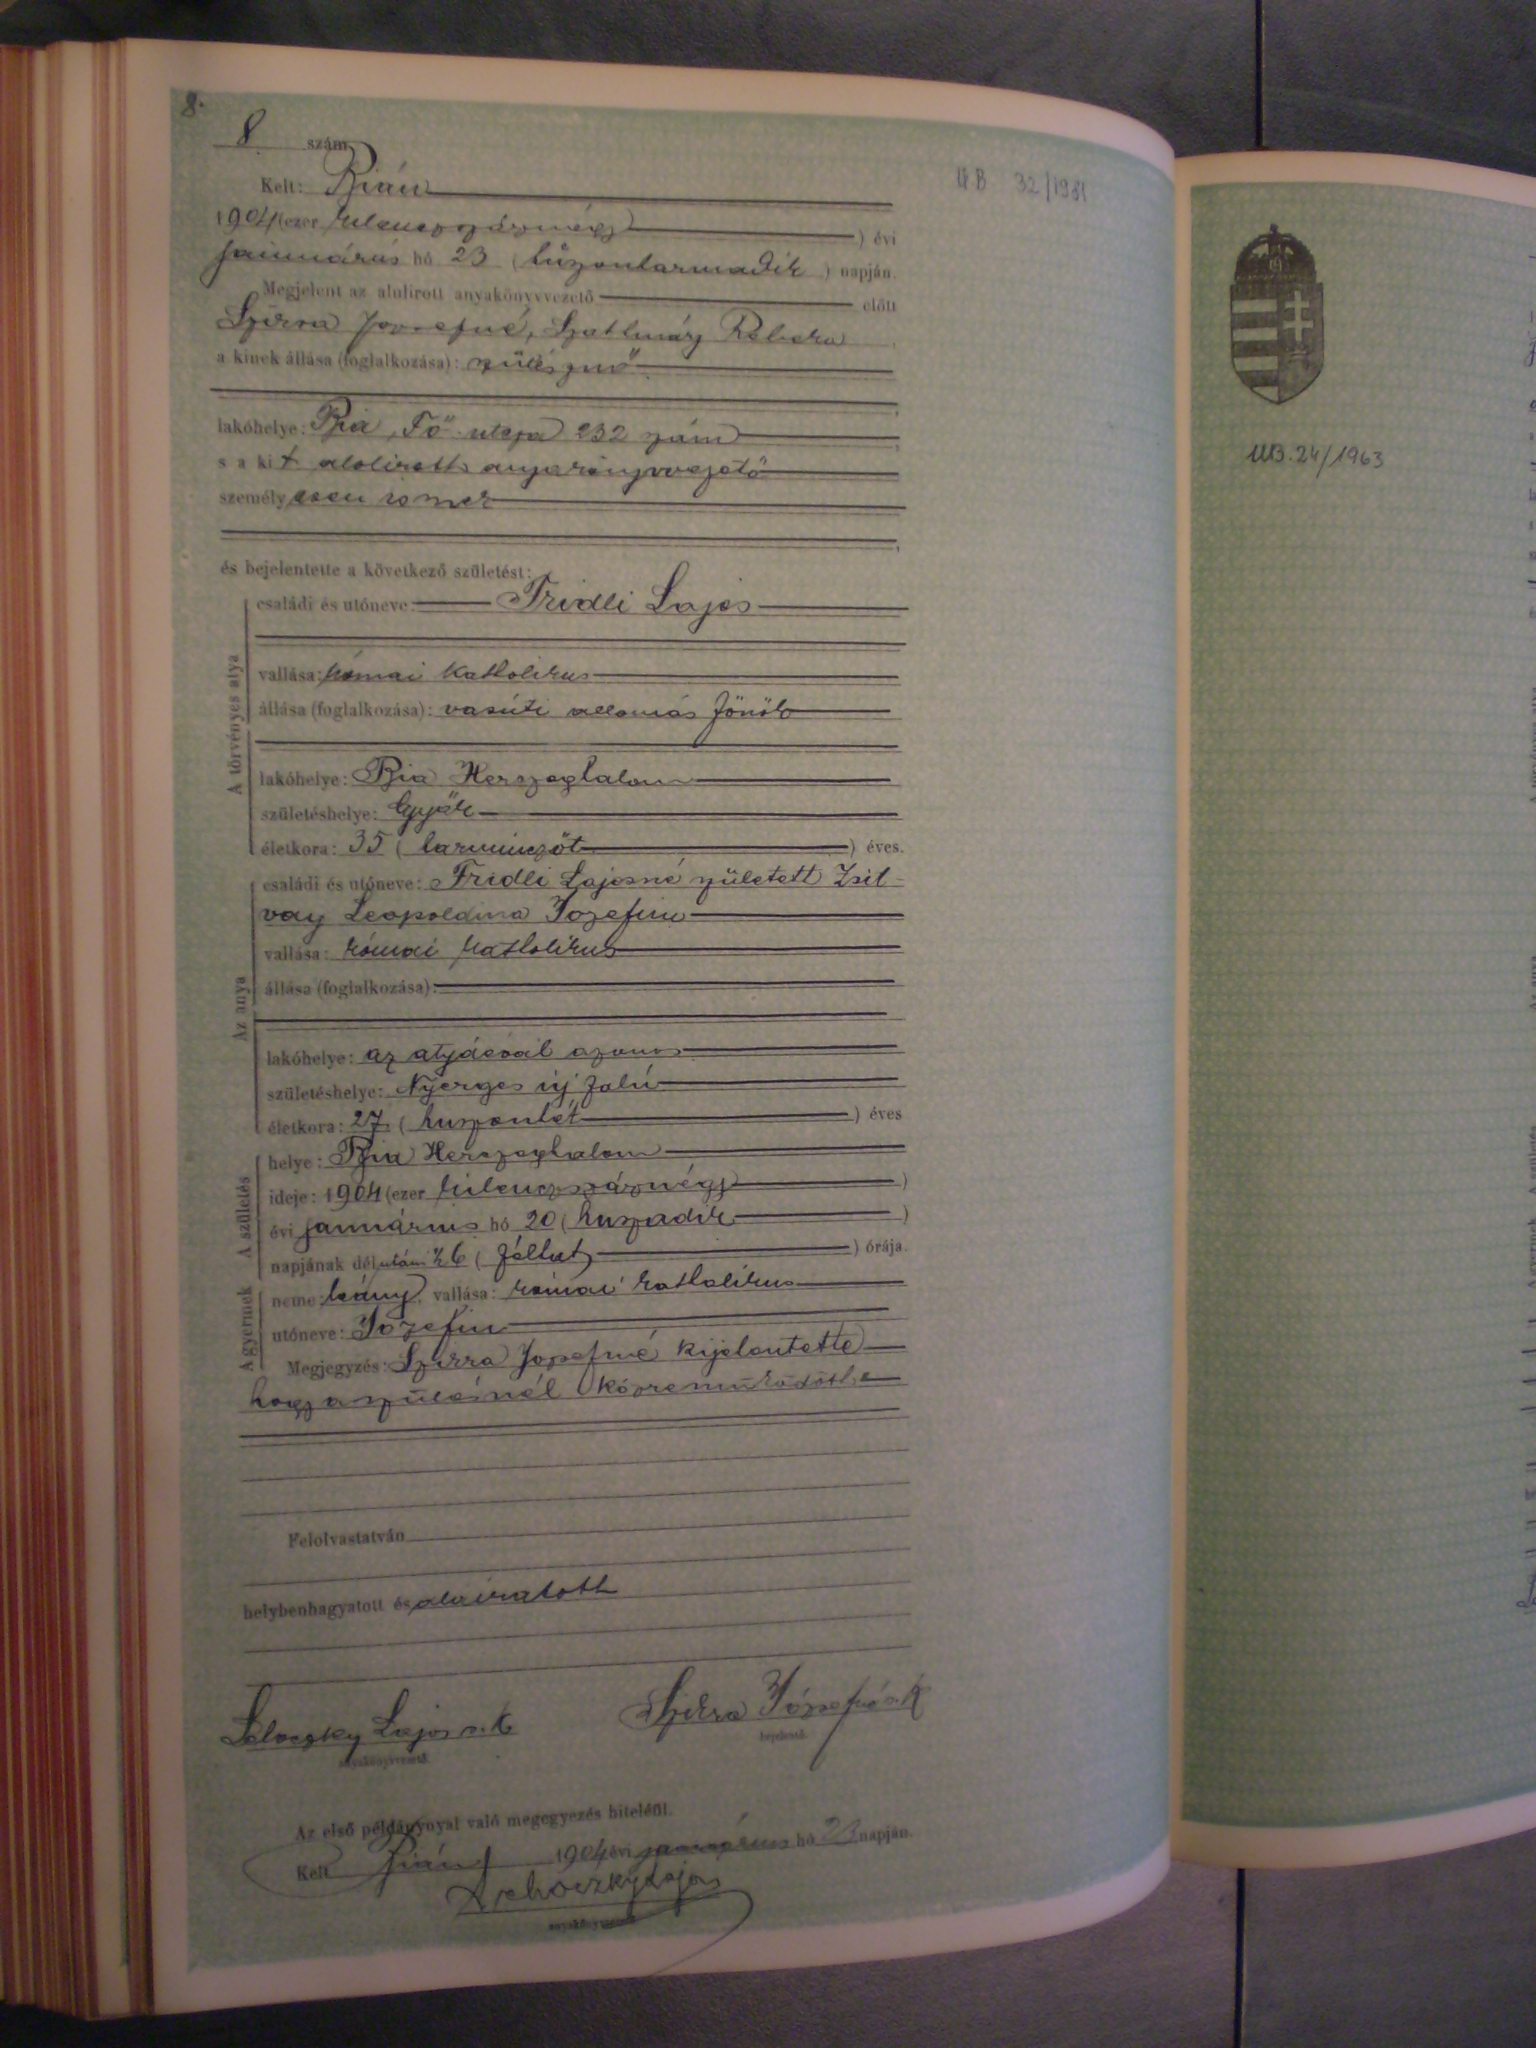 8.
8 szám
Kelt: Bián
1904 (ezer kilenczszáznégy) évi
januárius hó 23 (húszonharmadik) napján.
Megjelent az alulirott anyakönyvvezető előtt
Szikra Jozsefné, Szathmáry Rebeka
a kinek állása (foglalkozása): szülésznő
lakóhelye: Bia, Fő utcza 232 szám
s a kit alolirott anyakönyvvezető
személyesen ismer
és bejelentette a következő születést:
A törvényes atya
családi és utóneve: Fridli Lajos
vallása: római katholikus
állása (foglalkozása): vasúti allomás főnök
lakóhelye: Bia Herczeghalom
születéshelye: Győr
életkora: 35 (harminczöt) éves.
Az anya
családi és utóneve: Fridli Lajosné született Zsit-
vay Leopoldina Jozefin
vallása: római katholikus
állása (foglalkozása):
lakóhelye: az atyáéval azonos
születéshelye: Nyerges új falú
életkora: 27 (huszonhét) éves
A születés
helye: Bia Herczeghalom
ideje: 1904 (ezer kilenczszáznégy)
évi januárius hó 20 (huszadik)
napjának délutáni ½ 6 (félhat) órája.
A gyermek
neme: leány, vallása: római katholikus
utóneve: Jozefin
Megjegyzés: Szikra Jozsefné kijelentette
hogy a szülésnél közreműködött
Felolvastatván
helybenhagyatott és aláiratott
Lajos s. k.
anyakönyvvezető
Szikra Józsefné s. k.
bejelentő
Az első példánynyal való megegyezés hiteléül.
Kelt Bián 1904 évi januárius hó 23 napján.
Lajos
anyakönyvvezető
32/1981
UB. 24/1963